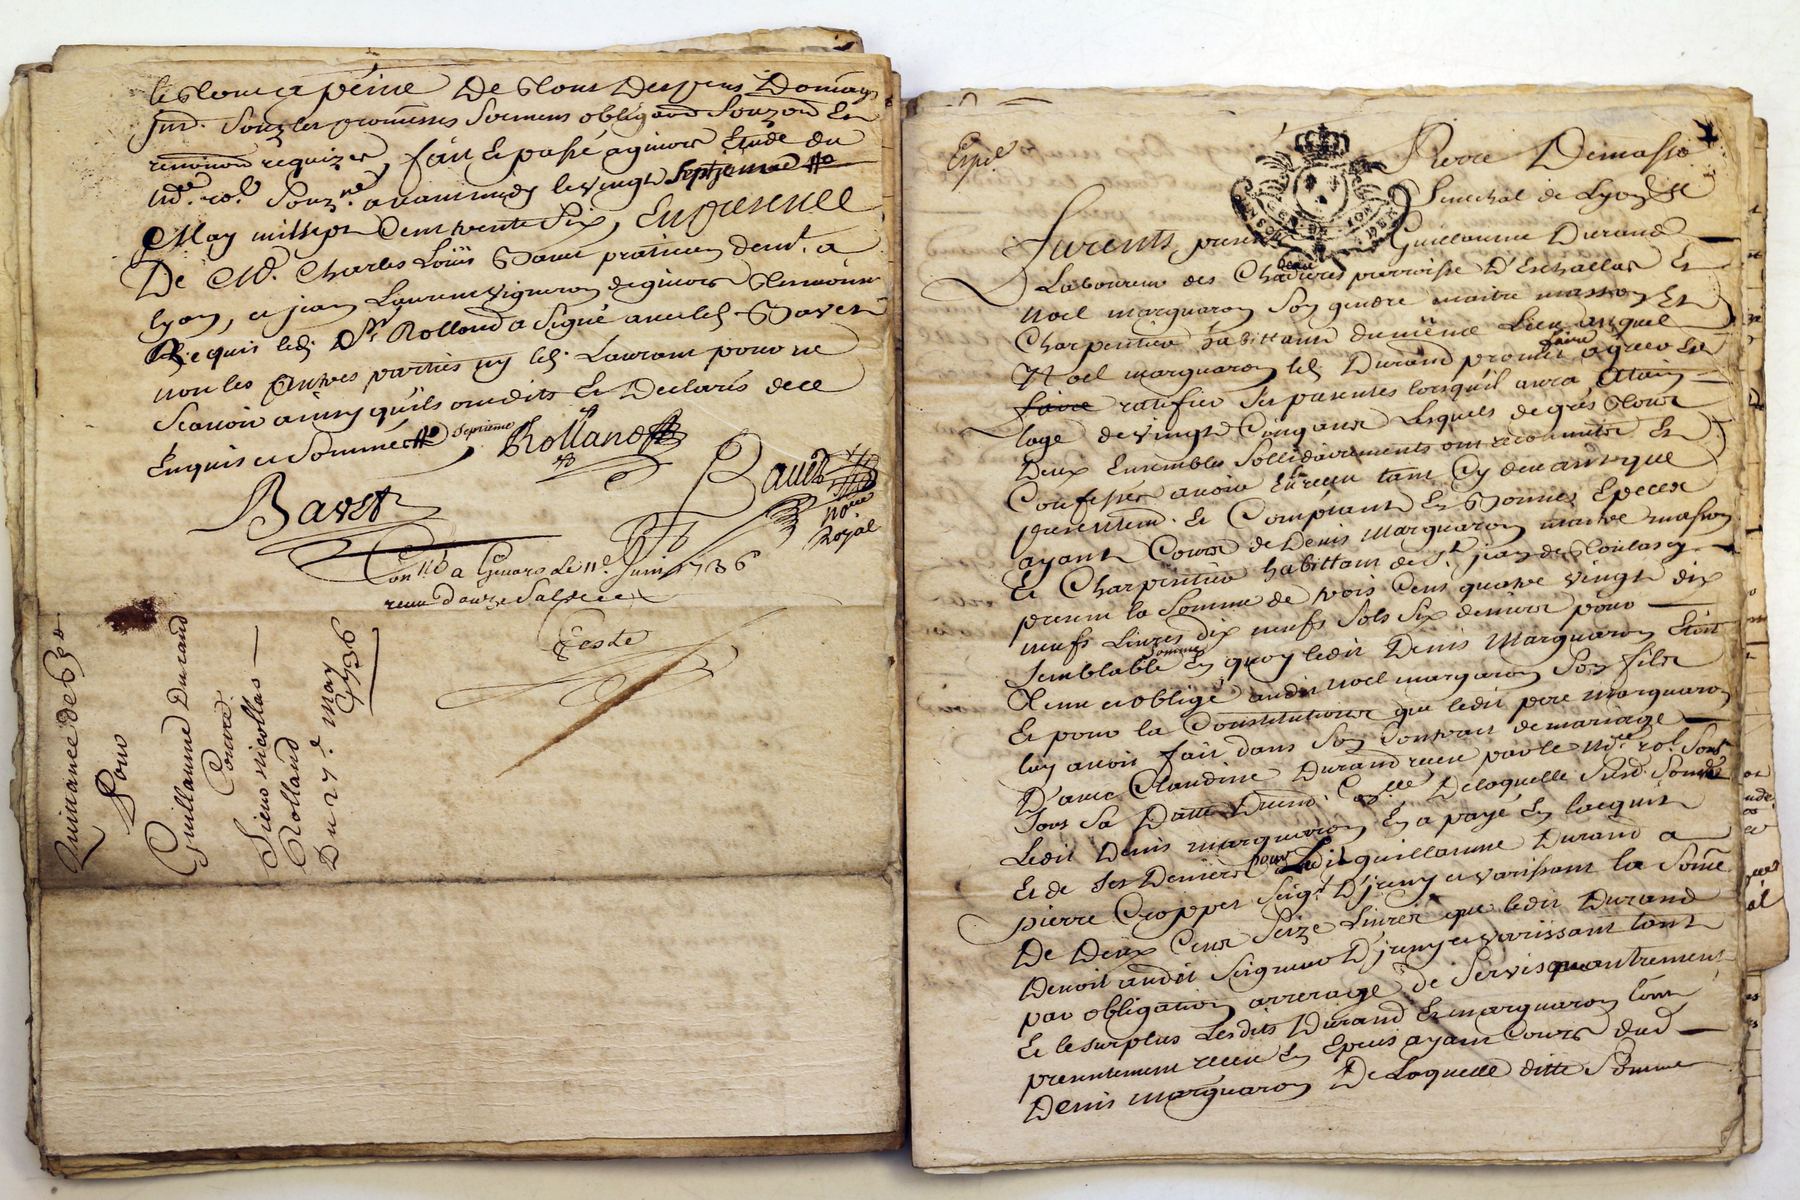 peine De tous Despens Domages
fait et passé a givors Etude du
avant midy le vingt septieme
May mil sept Cent trente six, En presence
De Mr. Charles Loüis Bavet praticien demt. a
Lyon, et jean Laurent vigneron de givors temoins
Requis led. Sr. Rolland a signé avec led. Bavet
non les autres parties ny led. Laurant pour ne
Scavoir ainsy qu'ils ont dits et Declarés de ce
Enquis et Sommés septieme Rolland
Bavet
not.re
Royal
a Givors le Juin 1736
recu douze sols
Teste
Quittance de
Pour
Guillaume Durand
Contre
Sieur nicollas
Rolland
Du 27e. may
1736
Expé
Pierre Demasso
Senechal de Lyon
Furents presents Guillaume Durand
Laboureur des parroisse D'Eschallas Et
noel marguaron son gendre maitre masson Et
Charpentier habittants du même Lieu auquel
Noel marguaron led. Durand promet faire agréer Et
faire ratifier ses presentes lorsqu'il aura atain
lage de vingt Cinq ans Lesquels de grés tous
Deux Ensembles sollidairements ont reconnuts Et
Confessés avoir Eu receu tant Cy devant que
presentemt. Et Comptant En Bonnes Epeces
ayant Cours de Denis Marguaron maitre masson
Et Charpentier habittant de St. jean de toulas
present la Somme de trois Cens quatre vingt dix
neufs Livres dix neufs sols six deniers pour
semblable somme En quoy ledit Denis Marguaron Etoit
tenu et obligé audit noel margaron son fils
Et pour la Constitution que ledit pere marguaron
luy avoit fait dans son Contrat de mariage
D'avec Claudine Durand receu par le not.re ro.l sous.
sous sa Datte De laquelle susd. somme
Ledit Denis marguaron En a payé En l'acquit
Et de ses Deniers pour Ledit guillaume Durand a
pierre Cropper seigr. D'jreny et varissant la some
De Deux Cens seize Livres que ledit Durand
Devoit audit seigneur D'jreny et varissant tant
par obligation arrerage de servis que autrement
Et le surplus lesdits Durand Et marguaron l'ont
presentement receu En Epeces ayant Cours dud.
Denis marguaron De Laquelle ditte somme